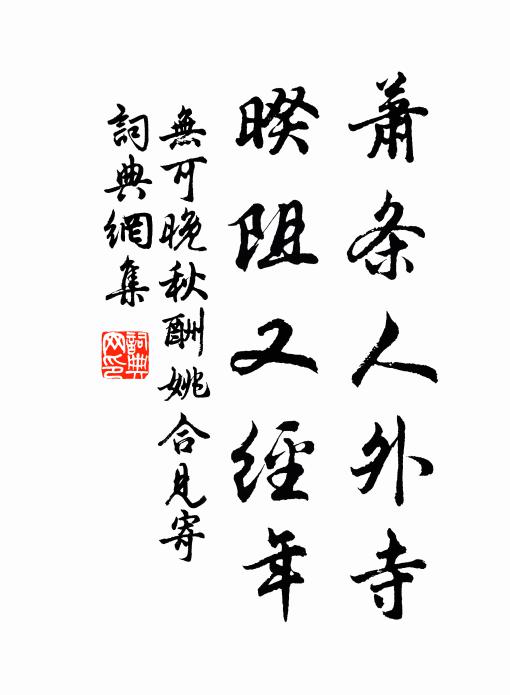 蕭条人外寺
暌阻又經年
無可晚秋酬姚合見寄
詞典網集
詞典網印